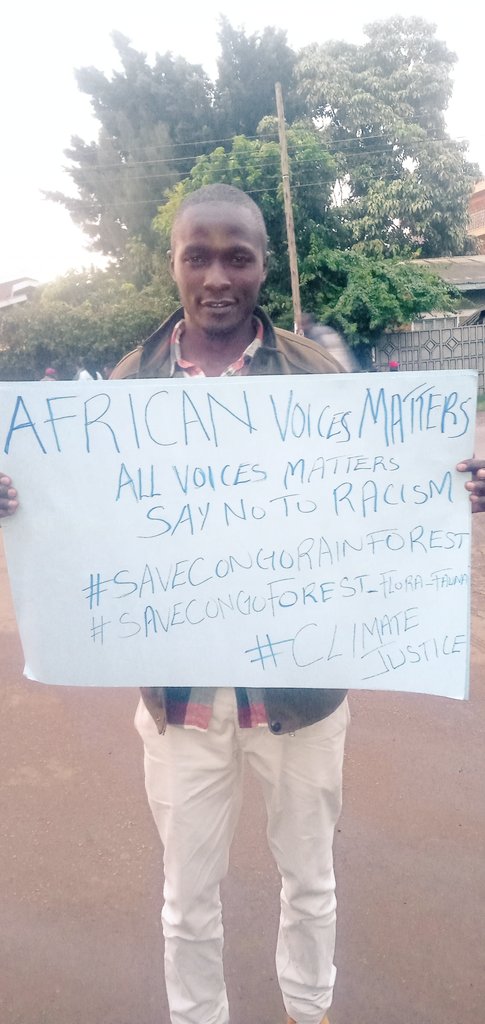 AFRICAN VOICES MATTERS
ALL VOICES MATTERS
SAY NO TO RACISM
#SAVECONGORAINFOREST
#SAVECONGOFOREST_FLORA_FAUNA
#CLIMATE
JUSTICE